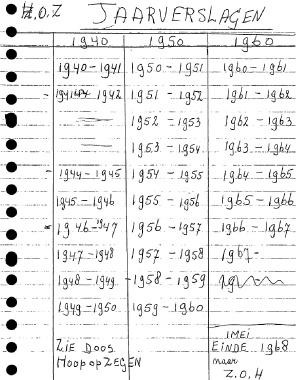 H.O.Z JAARVERSLAGEN
1940 1950 1960
1940-1941 1950-1951 1960-1961
1942 1951-1952 1961-1962
1952-1953 1962-1963
1953-1954 1963-1964
1944-1945 1954-1955 1964-1965
1945-1946 1955-1956 1965-1966
1946-1947 1956-1957 1966-1967
1947-1948 1957-1958 1967-
1948-1949 -1958-1959
1949-1950 1959-1960
ZIE DOOS
HOOP OP ZEGEN
1 MEI
EINDE 1968
naar
Z.O.H